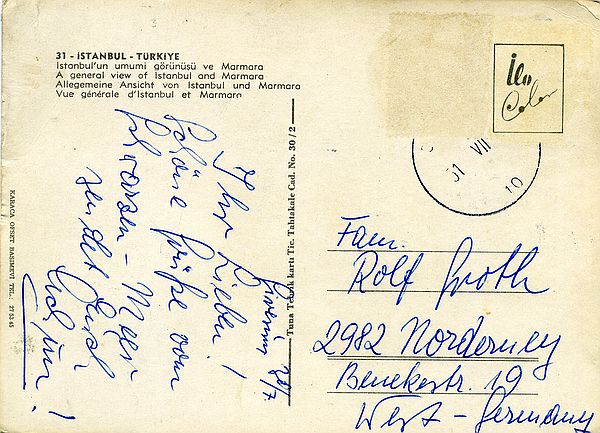 31 - İSTANBUL - TÜRKİYE
İstanbul'un umumi görünüsü ve Marmara
A general view of İstanbul and Marmara
Allegemeine Ansicht von İstanbul und Marmara
Vue générale d'İstanbul et Marmara
28/7
Ihr Lieben!
Schöne Grüße vom
Schwarzen - Meer
sendet Euch
KARACA OFSET BASIMEVİ TEL. 27 53 45
Tuna Teknik kartı Tic. Tahtakale Cad. No. 30 / 2
İlo
Color
31 VII
10
Fam.
Rolf Groth
2982 Norderney
Benekestr. 19
West - Germany